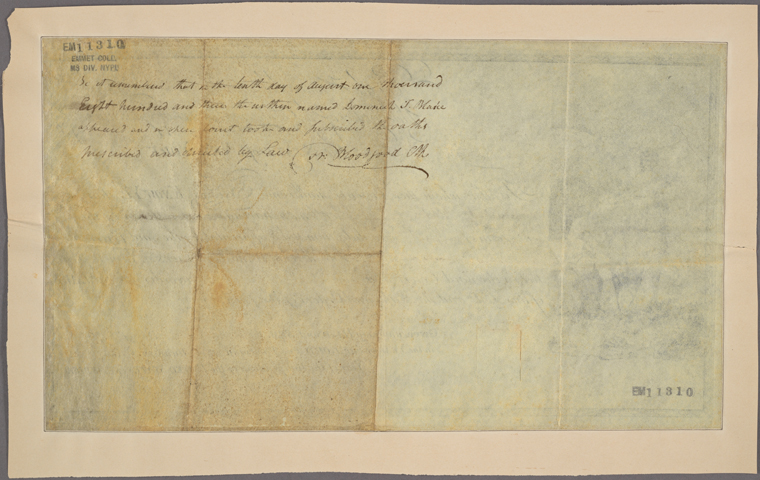 EM11310
EMMET COLL.
MS DIV. NYPL
Be it remembered that on the tenth day of August one thousand
Eight hundred and three the within named Dominick T. Blake
appeared and in open Court took and subscribed the oaths
prescribed and directed by Law Bloodgood Clk
EM11310